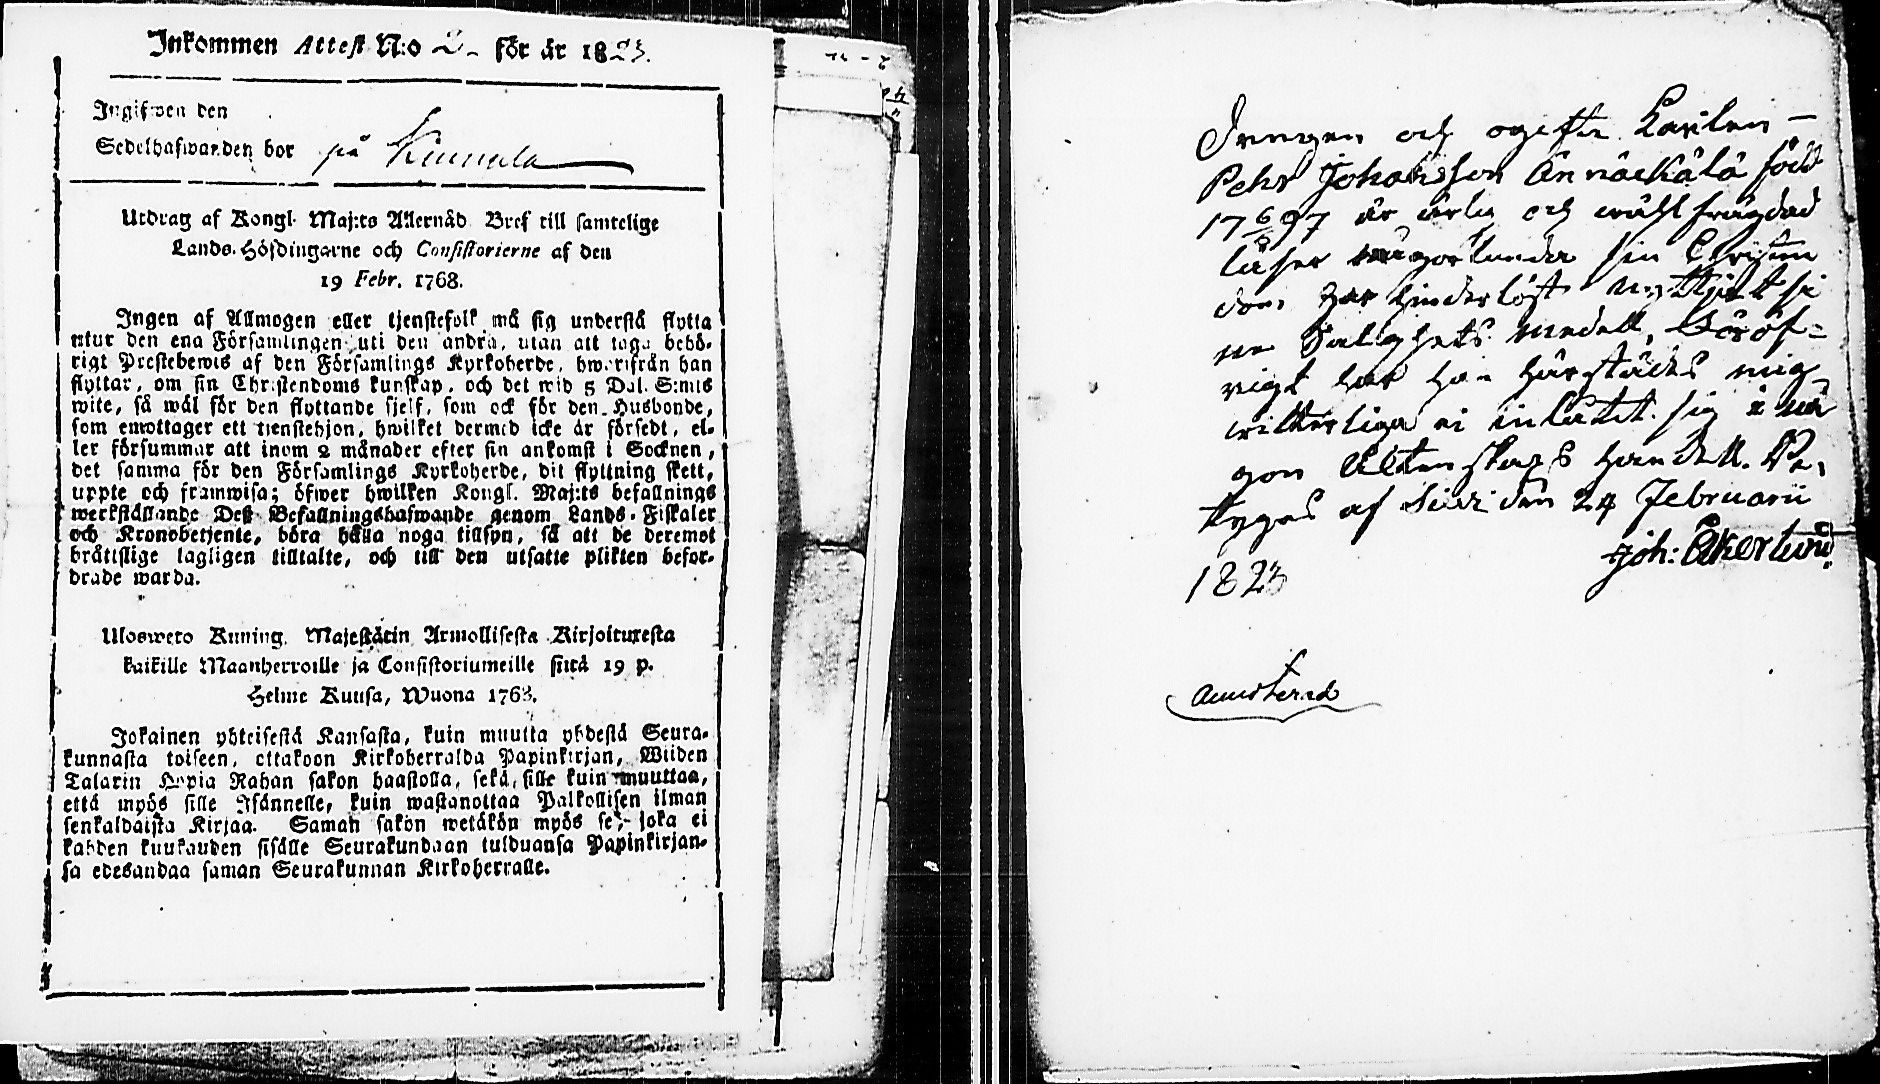 Inkommen Attest N:o 2 för år 1823.
Ingifwen den
Sedelhafwanden bor på Kinnula
Utdrag af Kongl. Maj:ts Allernåd. Bref till samtelige
Lands-Höfdingarne och Consistorierne af den
19 Febr. 1768.
Ingen af Allmogen eller tjenstefolk må sig understå flytta
utur den ena Församlingen uti den andra, utan att taga behö-
rigt Prestebewis af den Församlings Kyrkoherde, hworifrån han
flyttar, om sin Christendoms kunskap, och det wid 5 Dal. S:mts
wite, så wäl för den flyttande sjelf, som ock för den Husbonde,
som emottager ett tienstehjon, hwilket dermed icke är försedt, el-
ler försummar att inom 2 månader efter sin ankomst i Socknen,
det samma för den Församlings Kyrkoherde, dit flyttning skett,
uppte och framwisa; öfwer hwilken Kongl. Maj:ts befallnings
werkställande Deß Befallningshafwande genom Lands-Fiskaler
och Kronobetjente, böra hålla noga tillsyn, så att de deremot
bråtislige lagligen tilltalte, och till den utsatte plikten befor-
drade warda.
Ulosweto Kuning. Majestätin Armollisesta Kirjoituxesta
kaikille Maanherroille ja Consistoriumeille siitä 19 p.
Helme Kuusa, Wuona 1768.
Jokainen yhteisestä Kansasta, kuin muutta yhdestä Seura-
kunnasta toiseen, ottakoon Kirkoherralda Papinkirjan, Wiiden
Talarin Hopia Rahan sakon haastolla, sekä sille kuin muuttaa,
että myös sille Isännelle, kuin wastanottaa Palkollisen ilman
senkaldaista Kirjaa. Saman sakon wetäkön myös se, joka ei
kahden kuukauden sisälle Seurakundaan tulduansa Papinkirjan-
sa edesandaa saman Seurakunnan Kirkoherralle.
Drengen och ogifta Karlen
Pehr Johansson Ännäckälä född
17 6/8 97 är ärlig och wäl frägdad
läser någorlunda sin Christen
dom har hinderlöst nyttjat si
ne Salighets medell, För öf-
rigt har han härstädes mig
witterliga ei inlåtit sig i nå
gon Ächtenskaps handell. Be-
tygas af Sievi den 24 Februarii
1823 Joh: Åkerlund